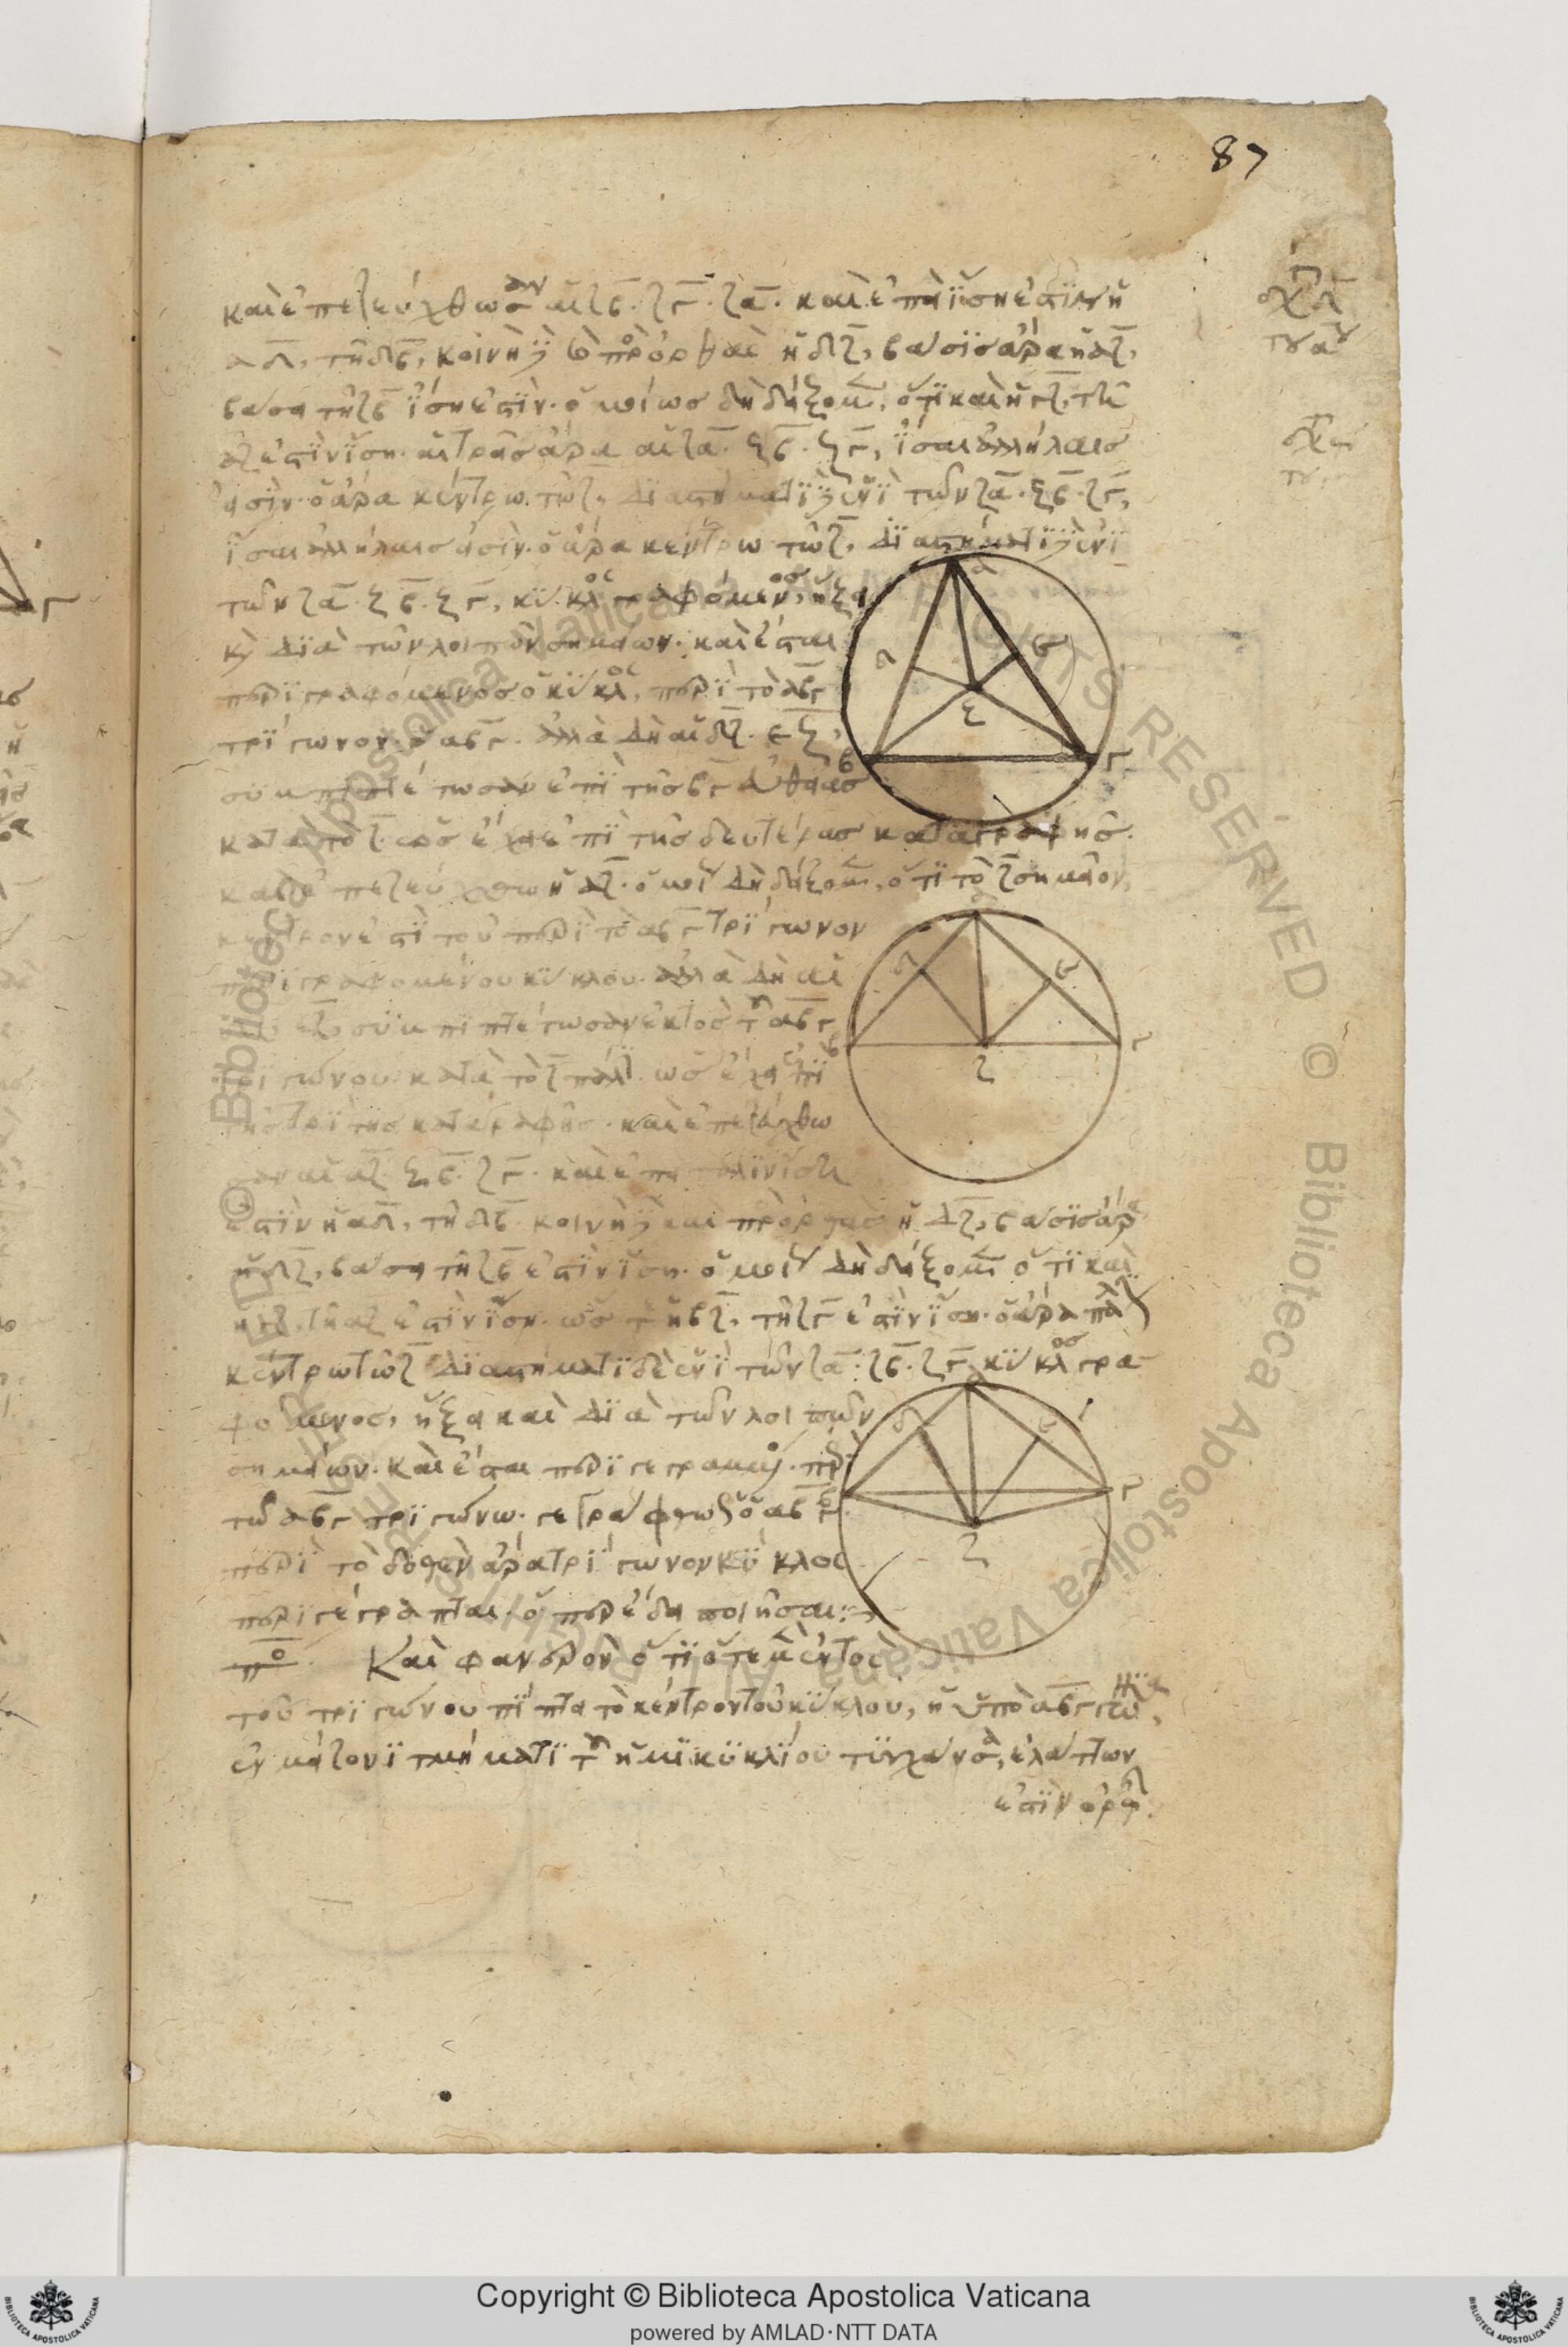 87
καὶ ἐπεζεύχθωσαν αἱ ζβ. ζγ. ζα. καὶ ἐπεὶ ἴση ἐστὶν ἡ
αδ, τῆ δβ, κοινὴ καὶ πρὸσ ὀρθὰσ ἡ δζ, βάσισ ἄρα ἡ αζ,
βάσει τῆ ζβ ἴση ἐστὶν. ὁμοίωσ δὴ δείξομεν, ὅτι καὶ ἡ γζ, τῆ
αζ ἐστὶν ἴση. αἱ τρεῖσ ἄρα αἱ ζα. ζβ. ζγ, ἴσαι ἀλλήλαισ
εἰσὶν. ὁ ἄρα κέντρω τῶ ζ, διαστήματι καὶ ἑνὶ τῶν ζα. ζβ. ζγ,
ἴσαι ἀλλήλαισ εἰσὶν. ὁ ἄρα κέντρω τῶ ζ, διαστήματι καὶ ἑνὶ
τῶν ζα. ζβ. ζγ, κύκλοσ γραφόμενοσ, ἥξει
καὶ διὰ τῶν λοιπῶν σημείων. καὶ ἔσται
περιγραφόμενοσ ὁ κύκλοσ, περὶ τὸ αβγ
τρίγωνον. ὁ αβγ. ἀλλὰ δὴ αἱ δζ. εζ,
συμπιπτέτωσαν ἐπὶ τῆσ βγ εὐθείασ
κατὰ τὸ ζ. ὡσ ἔχει ἐπὶ τῆσ δευτέρασ καταγραφῆσ.
καὶ ἐπεζεύχθω ἡ αζ. ὁμοίωσ δὴ δείξομεν, ὅτι τὸ ζ σημεῖον,
κέντρον ἐστὶ τοῦ περὶ τὸ αβγ τρίγωνον
περιγραφομένου κύκλου. ἀλλὰ δὴ αἱ
εζ, συμπιπτέτωσαν ἐκτὸσ τοῦ αβγ
τριγώνου κατὰ τὸ ζ πάλιν. ὡσ ἔχει ἐπὶ
τῆσ τρίτησ καταγραφῆσ. καὶ ἐπεζεύχθω
σαν αἱ αζ. ζβ. ζγ. καὶ ἐπεὶ πάλιν ἴση
ἐστὶν ἡ αδ, τῆ δβ. κοινὴ καὶ πρὸσ ὀρθὰσ ἡ δζ, βάσισ ἄρα
ἡ αζ, βάσει τῆ ζβ ἐστὶν ἴση. ὁμοίωσ δὴ δείξομεν ὅτι καὶ
ἡ γζ, τῆ αζ ἐστὶν ἴση. ὥστε ἡ βζ, τῆ ζγ ἐστὶν ἴση. ὁ ἄρα πάλιν
κέντρω τῶ ζ διαστήματι δὲ ἑνὶ τῶν ζα. ζβ. ζγ κύκλοσ γρα-
φόμενοσ, ἥξει καὶ διὰ τῶν λοιπῶν
σημείων. καὶ ἔσται περιγεγραμμένοσ. περὶ
τῶ αβγ τριγώνω. γεγράφθω ὡσ ὁ αβγ.
περὶ τὸ δοθὲν ἄρα τρίγωνον κύκλοσ
περιγέγραπται. ὅπερ ἔδει ποιῆσαι:
πο Καὶ φανερὸν ὅτι ὅτε μὲν ἐντὸσ
τοῦ τριγώνου πίπτει τὸ κέντρον τοῦ κύκλου, ἡ ὑπὸ αβγ γωνία,
ἐν μείζονι τμήματι τοῦ ἡμικυκλίου τυγχάνουσα, ἐλάττων
ἐστὶν ὀρθῆσ.
α
δ
ε
ζ
β
γ
α
δ
ε
β
γ
ζ
α
δ
ε
β
γ
ζ
Copyright © Biblioteca Apostolica Vaticana
powered by AMLAD·NTT DATA